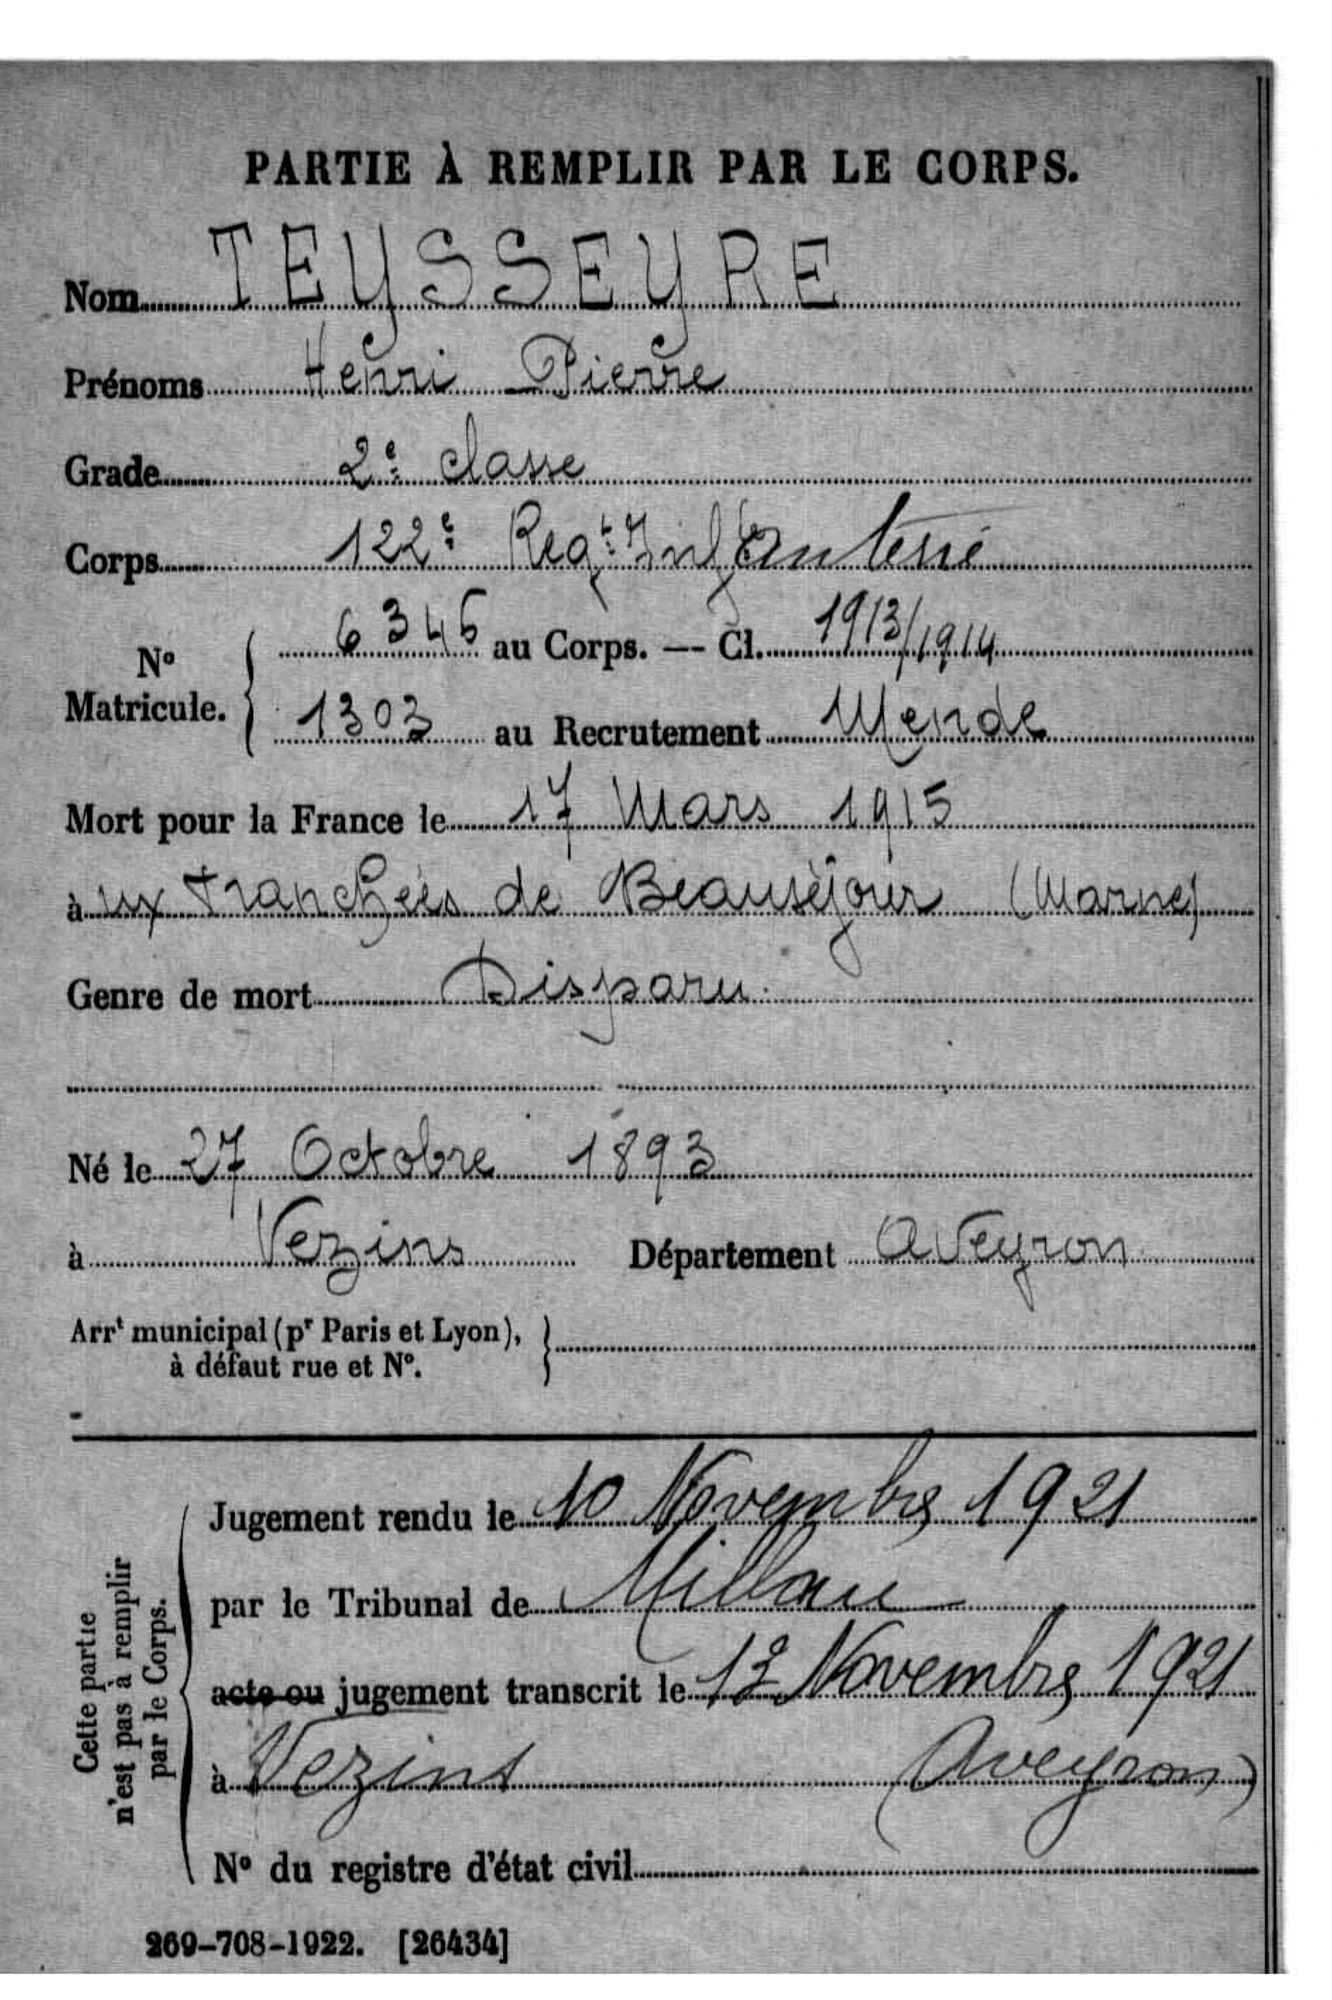 PARTIE À REMPLIR PAR LE CORPS.
Nom TEYSSEYRE
Prénoms Henri Pierre
Grade 2e classe
Corps 122e Regt Infanterie
No Matricule. 6346 au Corps. — Cl. 1913/1914
1303 au Recrutement Mende
Mort pour la France le 17 Mars 1915
à ux tranchées de Beauséjour (Marne)
Genre de mort Disparu
Né le 27 Octobre 1893
à Vezins Département Aveyron
Arrt municipal (pr Paris et Lyon),
à défaut rue et No.
Cette partie
n'est pas à remplir
par le Corps.
Jugement rendu le 10 Novembre 1921
par le Tribunal de Millau
acte ou jugement transcrit le Novembre 1921
à Vezins (Aveyron)
No du registre d'état civil
269-708-1922. [26434]